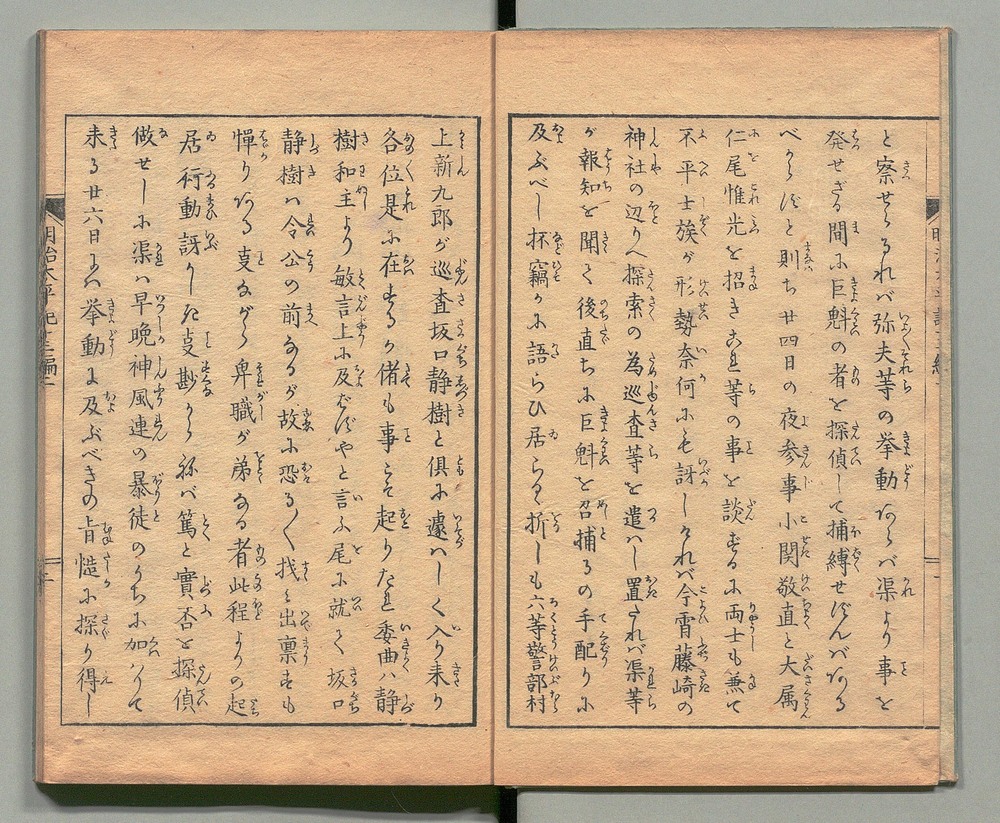 と察せらるれバ弥夫等の挙動あらバ渠より事を
発せざる間に巨魁の者を探偵して捕縛せずんバある
べからずと則ち廿四日の夜参事小関敬直と大属
仁尾惟光を招き是等の事を談ずるに両士も兼て
不平士族が形勢奈何にも訝しけれバ今宵藤崎の
神社の辺りへ探索の為巡査等を遣ハし置たれバ渠等
が報知を聞く後直ちに巨魁を召捕るの手配りに
及ぶべし抔竊かに語らひ居らる折しも六等警部村
上新九郎が巡査坂口静樹と倶に遽ハしく入り来り
各位是に在するか偖も事こそ起りたれ委曲ハ静
樹和主より敏言上に及ばずやと言ふ尾に就て坂口
静樹ハ令公の前なるが故に恐る〱找み出禀すも
憚りある事ながら卑職が弟なる者此程よりの起
居行動訝りしき事尠からねバ篤と實否を探偵
做せしに渠ハ早晩神風連の暴徒のうちに加ハりて
来る廿六日にハ挙動に及ぶべきの旨慥に探り得し
明治太平記十三編二